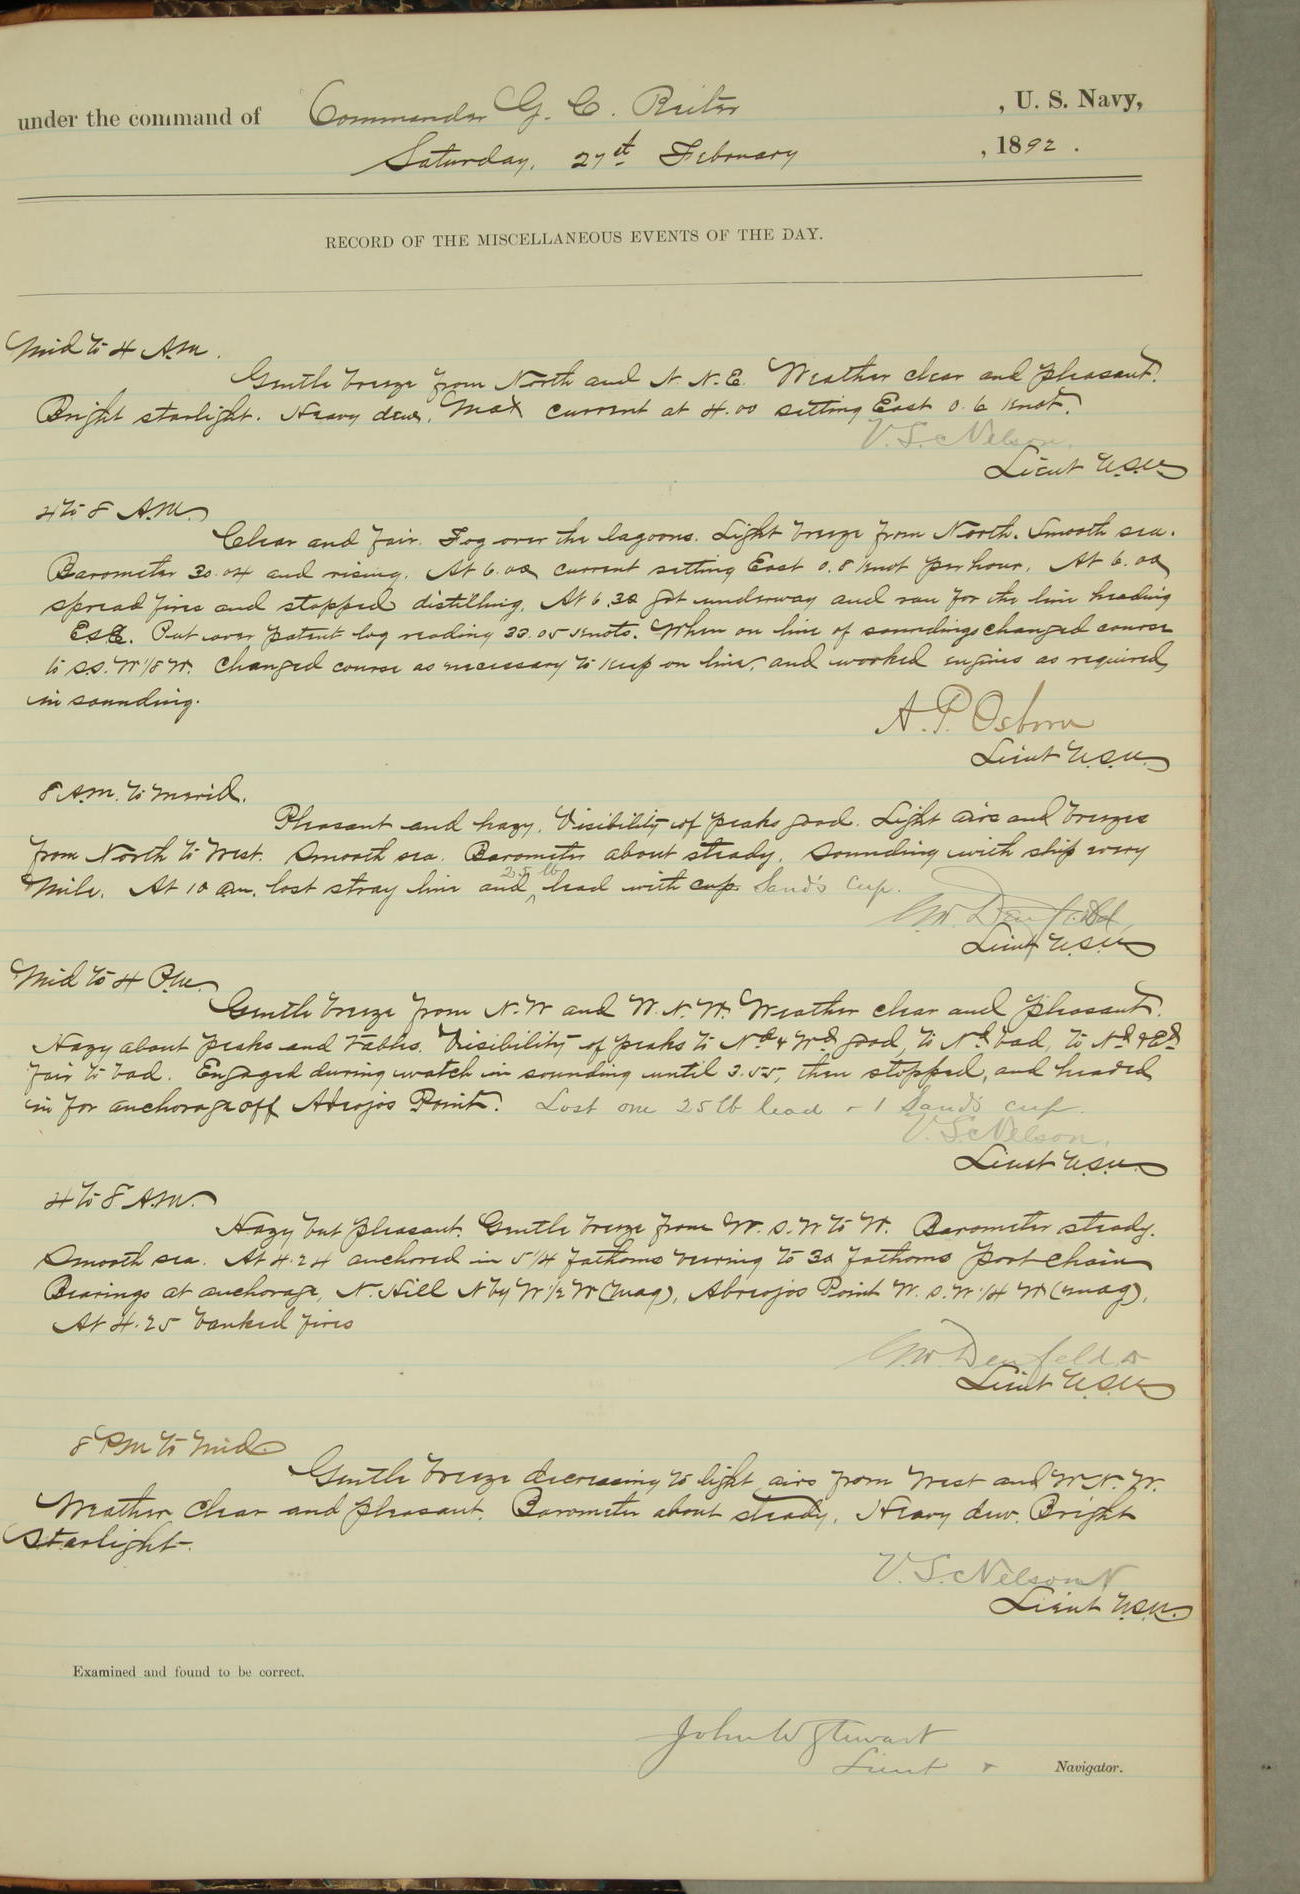 under the command of Commander G. C. Reiter , U. S. Navy,
Saturday, 27th February , 1892 .
RECORD OF THE MISCELLANEOUS EVENTS OF THE DAY.
Mid to 4 A.M.
Gentle breeze from North and N.N.E. Weather clear and pleasant.
Bright starlight. Heavy dew. Max current at 4.00 setting East 0.6 knot.
V. S. Nelson.
Lieut U.S.N.
4 to 8 A.M.
Clear and fair. Fog over the lagoons. Light breeze from North. Smooth sea.
Barometer 30.04 and rising. At 6.00 current setting East 0.8 knot per hour. At 6.00
spread fires and stopped distilling. At 6.30 got underway and ran for the line heading
E.S.E. Put over patent log reading 33.05 knots. When on line of soundings changed course
to S.S.W 1/8 W. Changed course as necessary to keep on line, and worked engines as required
in sounding.
A. P. Osborn
Lieut U.S.N.
8 A.M. to merid.
Pleasant and hazy. Visibility of peaks good. Light airs and breezes
from North to West. Smooth sea. Barometer about steady. Sounding with ship every
mile. At 10 am. lost stray line and 25 lb lead with cup. Sand's cup.
G.W. Denfeld
Lieut U.S.N.
Mid to 4 P.M.
Gentle breeze from N.W and W.N.W. Weather clear and pleasant.
Hazy about peaks and tables. Visibility of peaks to Nd & Wd good, to Nd bad, to Nd & Ed
fair to bad. Engaged during watch in sounding until 3.55, then stopped, and headed
in for anchorage off Abreojos Point. Lost one 25 lb lead & 1 Sand's cup.
V. S. Nelson.
Lieut U.S.N.
4 to 8 A.M.
Hazy but pleasant. Gentle breeze from W.S.W to W. Barometer steady.
Smooth sea. At 4.24 anchored in 5 1/4 fathoms veering to 30 fathoms port chain
Bearings at anchorage, N. Hill N by W 1/2 W (mag), Abreojos Point W.S.W 1/4 W (mag).
At 4.25 banked fires
G.W. Denfeld
Lieut U.S.N.
8 P.M to Mid
Gentle breeze decreasing to light airs from West and W.N.W.
Weather clear and pleasant. Barometer about steady. Heavy dew. Bright
Starlight.
V. S. Nelson
Lieut U.S.N.
Examined and found to be correct.
John W Stewart
Lieut Navigator.